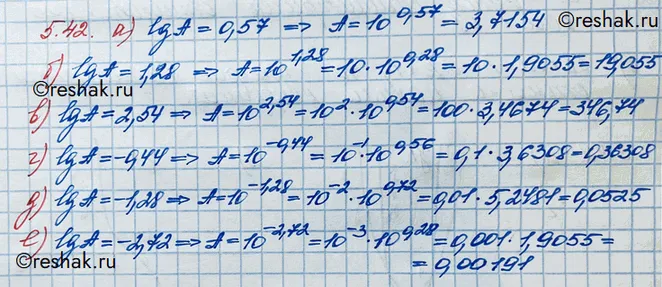 ©reshak.ru
5.42. а) lg A = 0,57 => A = 10^0,57 = 3,7154
б) lg A = 1,28 => A = 10^1,28 = 10 · 10^0,28 = 10 · 1,9055 = 19,055
в) lg A = 2,54 => A = 10^2,54 = 10^2 · 10^0,54 = 100 · 3,4674 = 346,74
г) lg A = -0,44 => A = 10^-0,44 = 10^-1 · 10^0,56 = 0,1 · 3,6308 = 0,36308
д) lg A = -1,28 => A = 10^-1,28 = 10^-2 · 10^0,72 = 0,01 · 5,2481 = 0,0525
е) lg A = -2,72 => A = 10^-2,72 = 10^-3 · 10^0,28 = 0,001 · 1,9055 =
= 0,00191
©reshak.ru